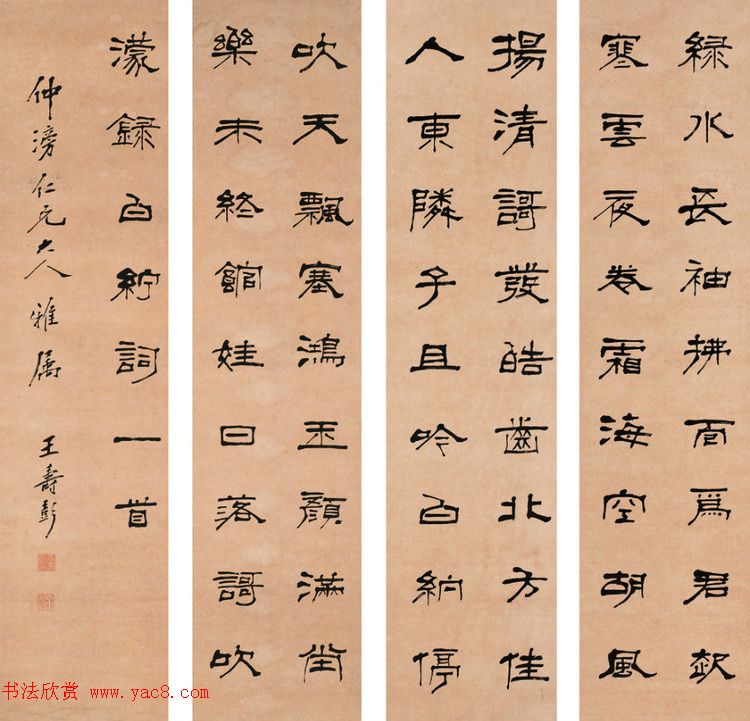 緑水長袖拂面爲君起
寒雲夜卷霜海空胡風
揚清謌發皓齒北方佳
人東隣子且吟白紵停
吹天飄塞鴻玉顔滿堂
樂未終館娃日落謌吹
濛録白紵詞一首
仲滂仁兄大人雅属 王壽彭
书法欣赏 www.yac8.com